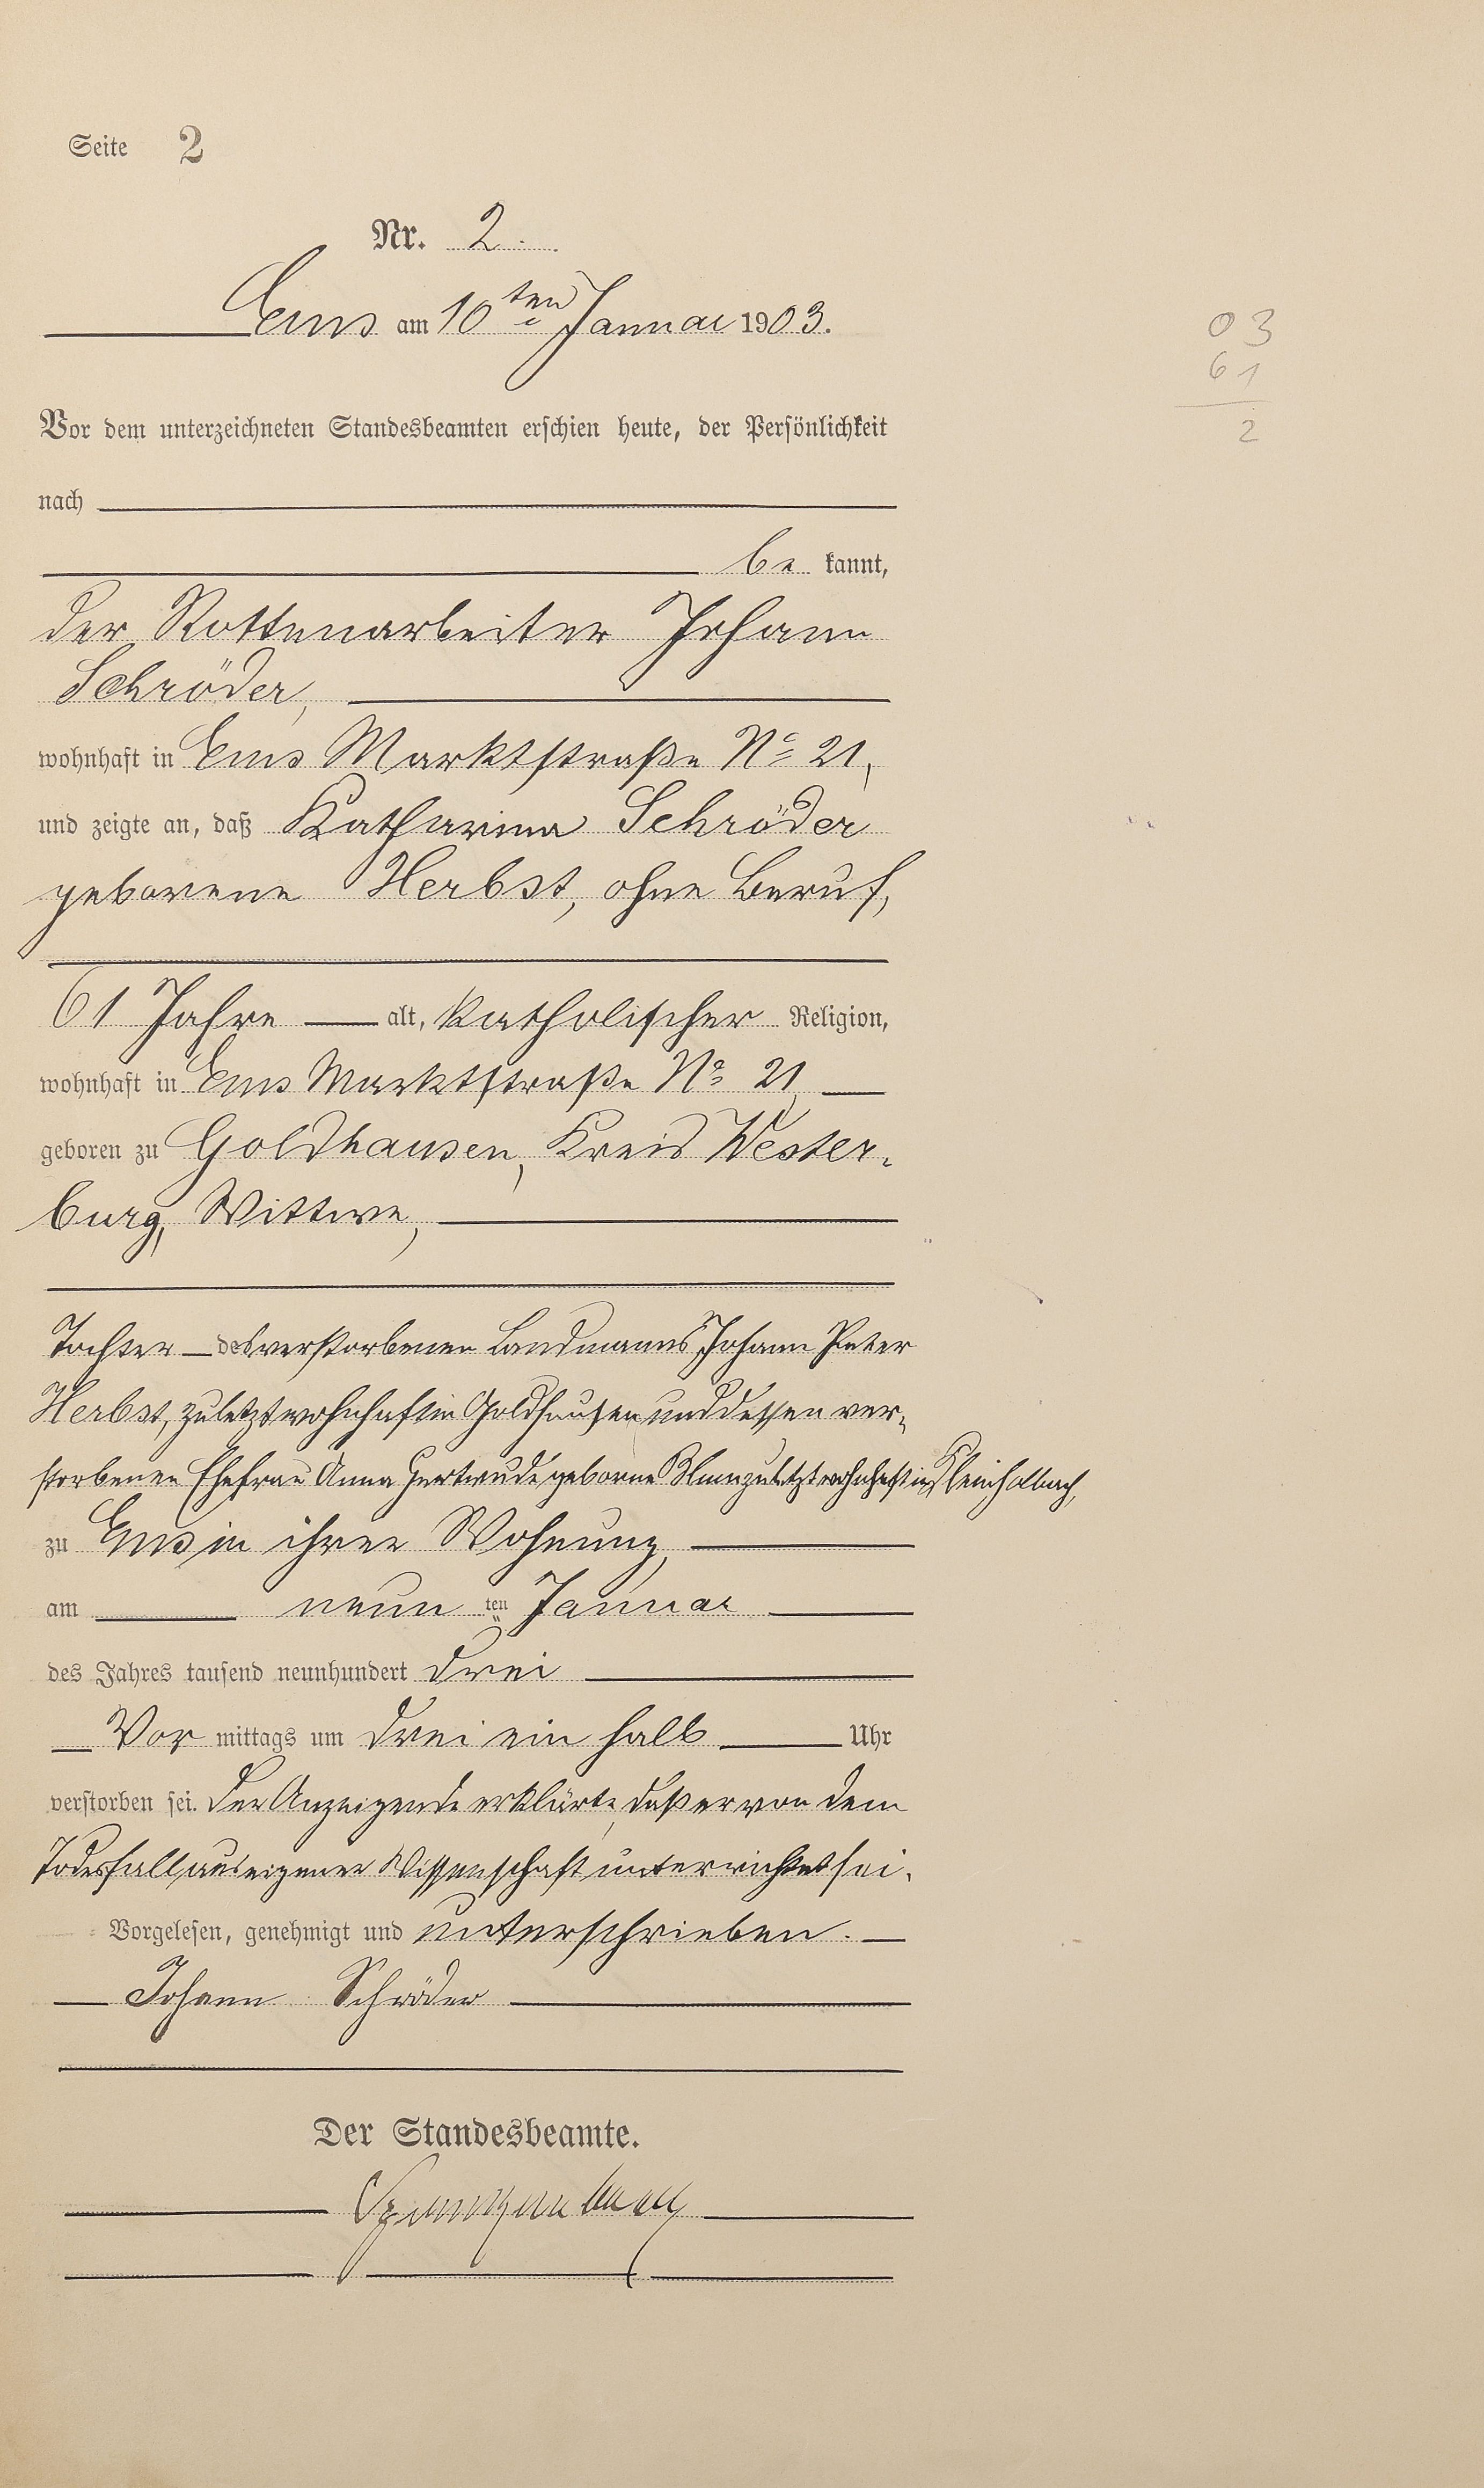 Seite 2
Nr. 2.
Ems am 10ten Januar 1903.
03
61
2
Vor dem unterzeichneten Standesbeamten erschien heute, der Persönlichkeit
nach
be kannt,
der Rottenarbeiter Johann
Schröder,
wohnhaft in Ems Marktstraße No 21,
und zeigte an, daß Katharina Schröder
geborene Herbst, ohne Beruf,
61 Jahre alt, katholischer Religion,
wohnhaft in Ems Marktstraße No 21,
geboren zu Goldhausen, Kreis Wester-
burg, Wittwe,
Tochter des verstorbenen Landmanns Johann Peter
Herbst, zuletzt wohnhaft in Goldhausen und dessen ver-
storbenen Ehefrau Anna Gertrude geborne zuletzt wohnhaft in Kleinholbach,
zu Ems in ihrer Wohnung,
am neun ten Januar
des Jahres tausend neunhundert drei
Vor mittags um drei ein halb Uhr
verstorben sei. Der Anzeigende erklärte, daß er von dem
Todesfall aus eigener Wissenschaft unterrichtet sei.
Vorgelesen, genehmigt und unterschrieben.
Johann Schröder
Der Standesbeamte.